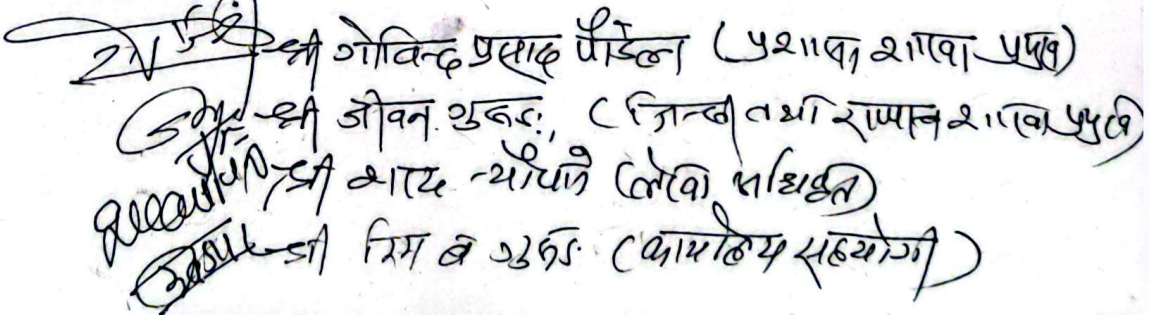 श्री गोविन्द प्रसाद पौडेल (प्रशासन शाखा प्रमुख)
श्री जीवन गुरुङ, (जिन्सी तथा शाखा प्रमुख)
श्री शरद न्यौपाने (लेखा अधिकृत)
श्री रिम ब गुरुङ (कार्यालय सहयोगी)